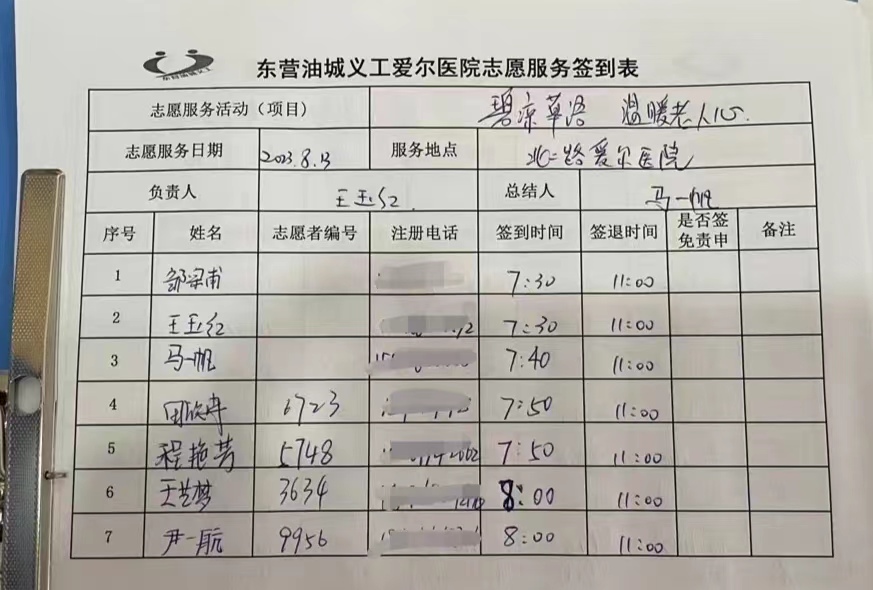 东营油城义工
东营油城义工爱尔医院志愿服务签到表
志愿服务活动（项目） 碧凉草语 温暖老人心.
志愿服务日期 2023.8.13 服务地点 北二路爱尔医院
负责人 王玉红. 总结人 马一帆
序号 姓名 志愿者编号 注册电话 签到时间 签退时间 是否签免责申 备注
1 邹梁甫 7:30 11:00
2 王玉红 7:30 11:00
3 马一帆 7:40 11:00
4 6723 7:50 11:00
5 程艳芳 5748 7:50 11:00
6 王梦 3634 8:00 11:00
7 尹一航 9956 8:00 11:00